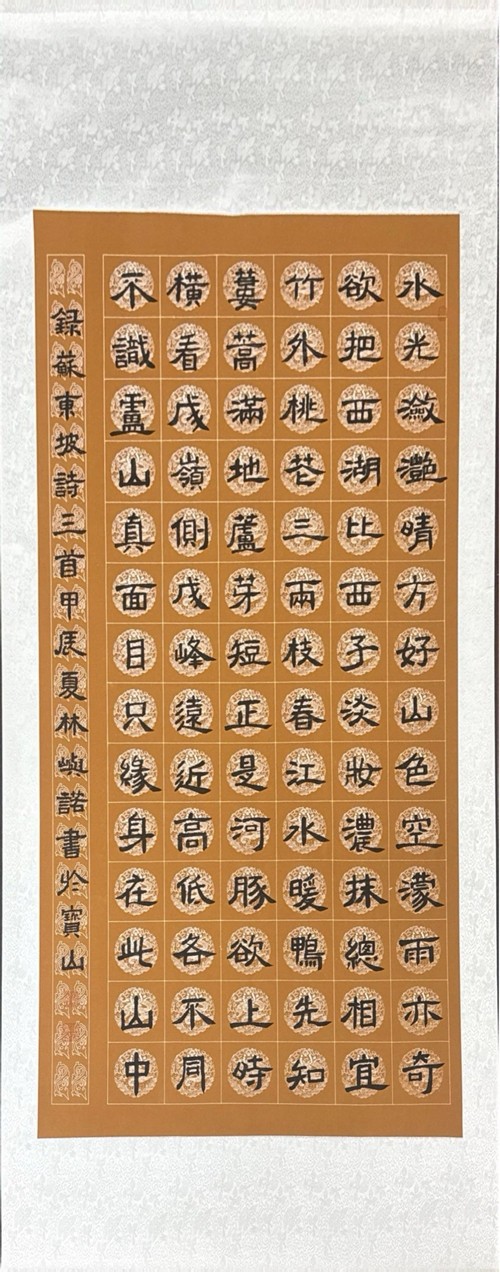 水光瀲灔晴方好山色空濛雨亦奇
欲把西湖比西子淡妝濃抹總相宜
竹外桃花三兩枝春江水暖鴨先知
蔞蒿滿地蘆芽短正是河豚欲上時
橫看成嶺側成峰遠近高低各不同
不識盧山真面目只緣身在此山中
録蘇東坡詩三首甲辰夏林嶼諾書於寶山